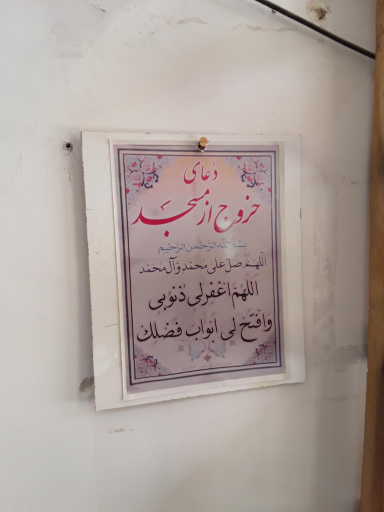 دعای
خروج از مسجد
بسم الله الرحمن الرحیم
اللهم صل علی محمد و آل محمد
اللهم اغفرلی ذنوبی
وافتح لی ابواب فضلك